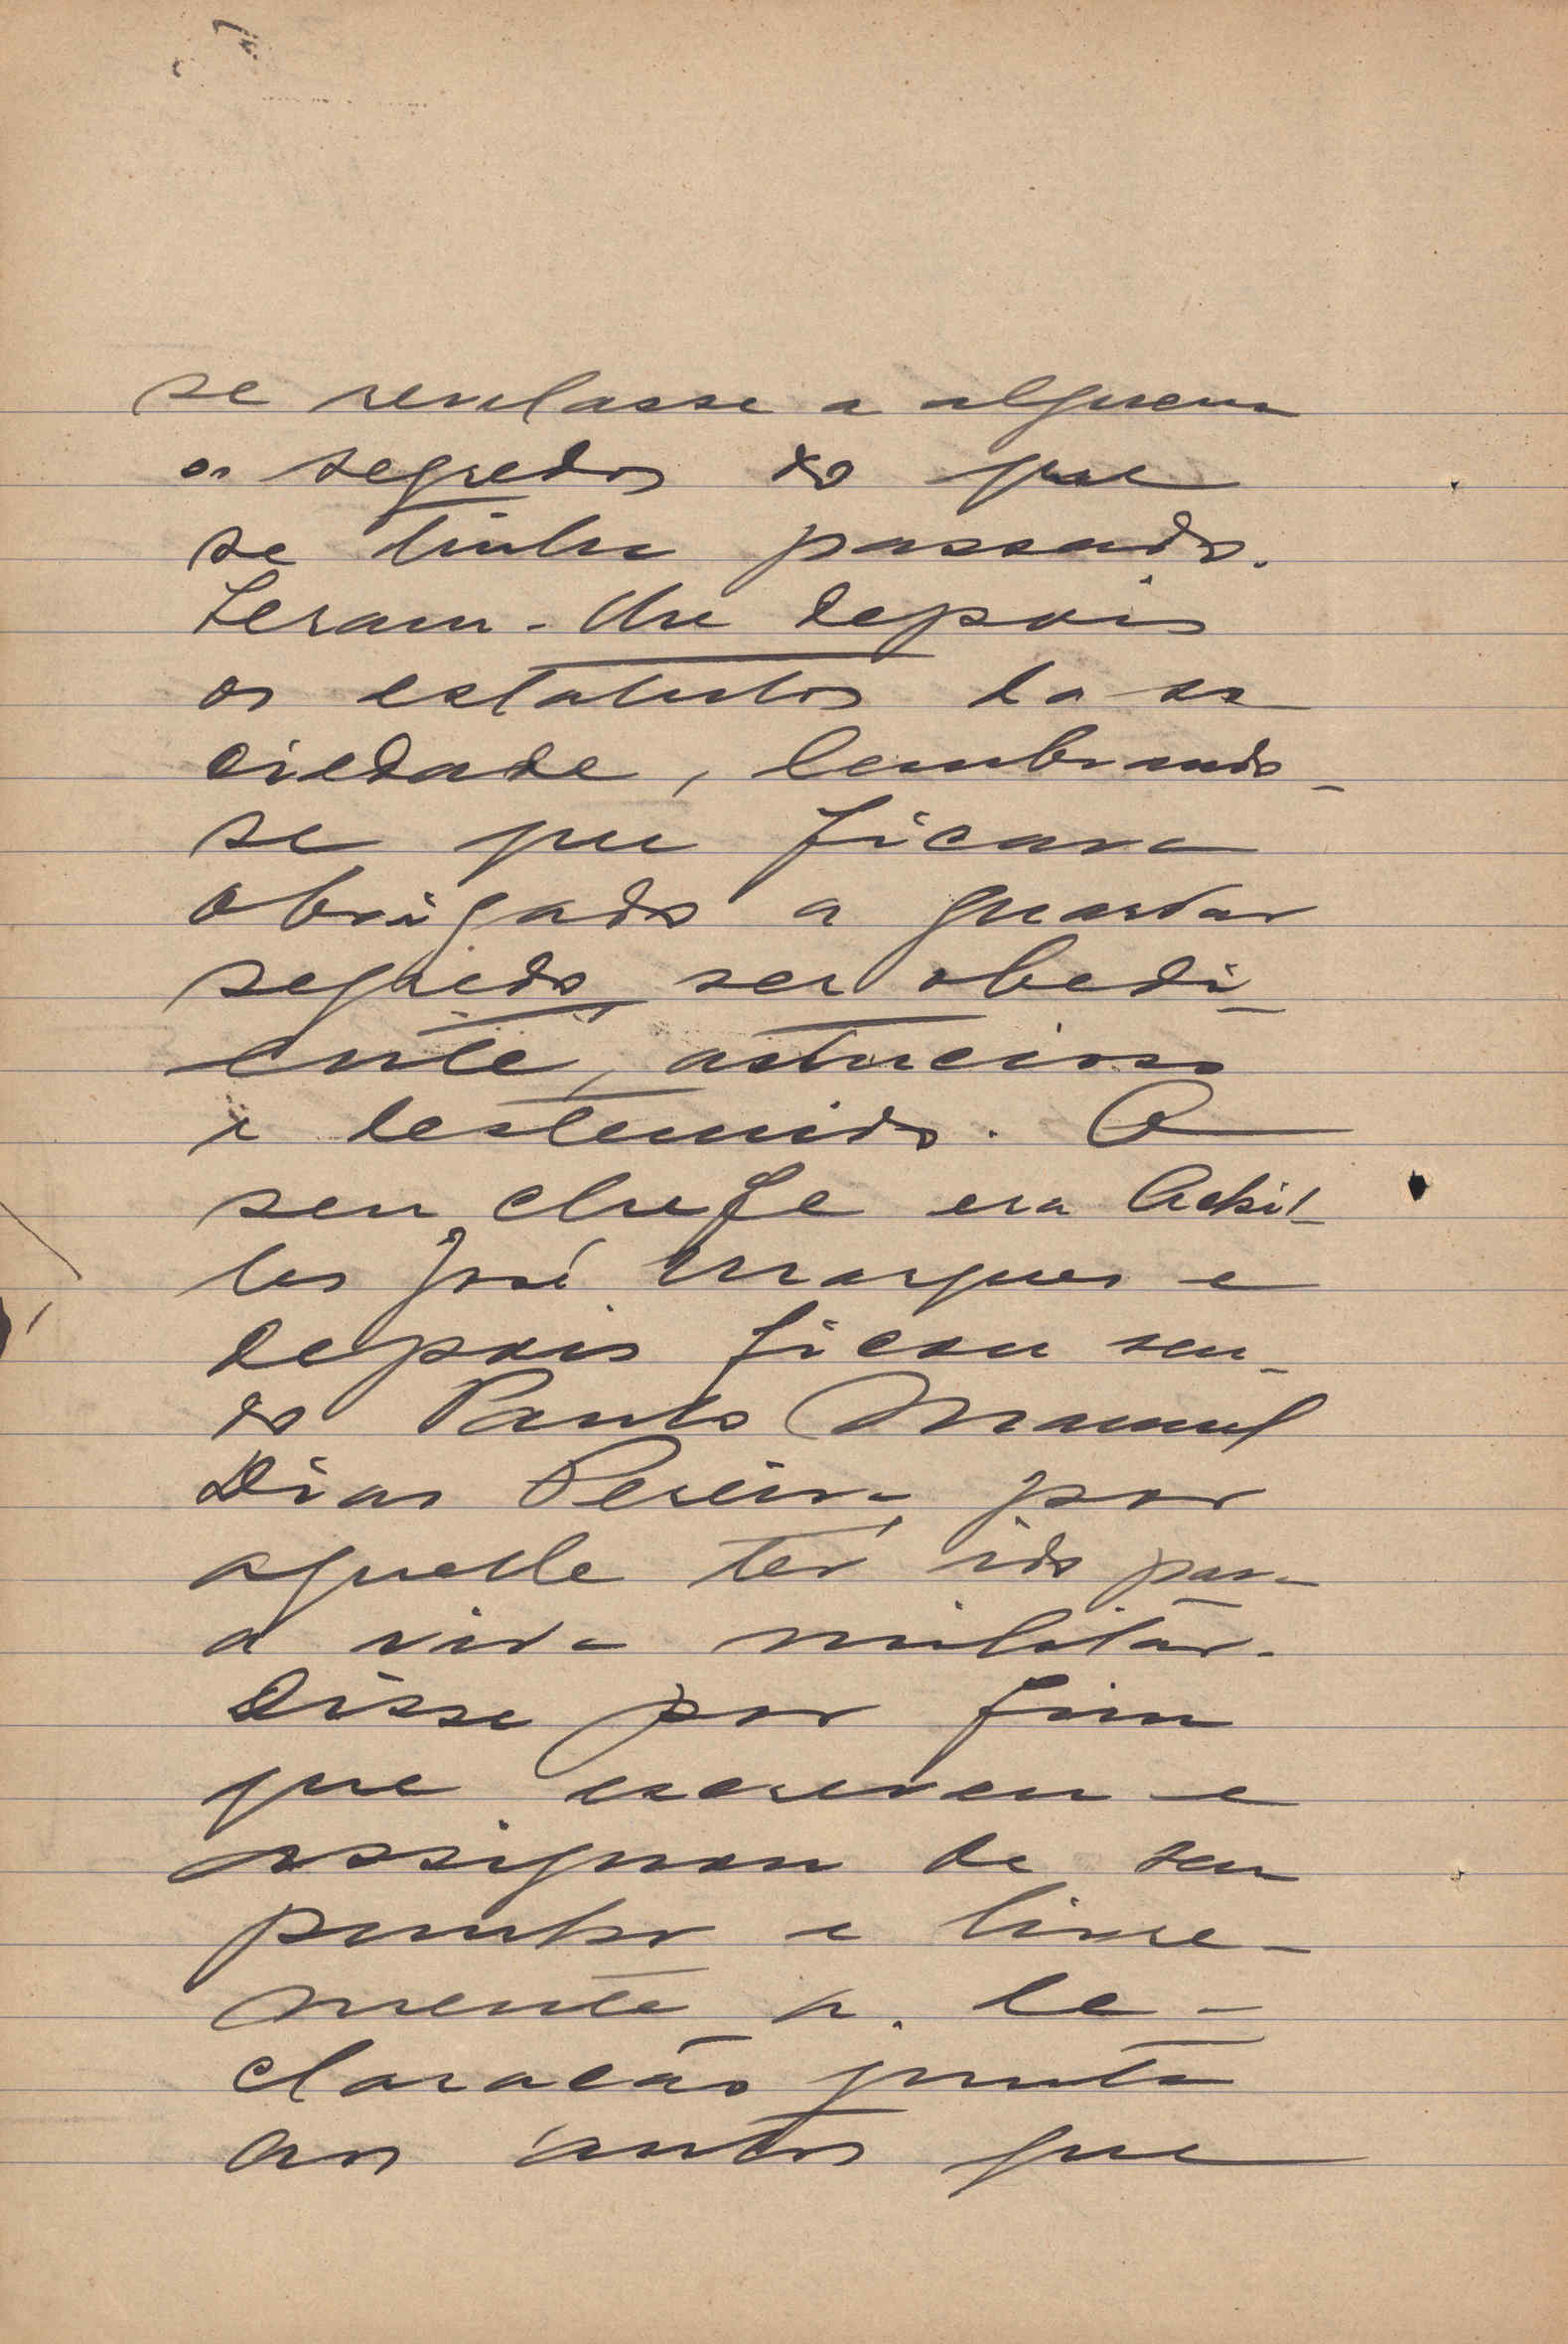 se revelasse a alguem
os segredos do que
se tinha passado.
Leram-lhe depois
os estatutos da so
ciedade, lembrando-
se que ficava
obrigado a guardar
segredo, ser obedi-
ente, astucioso
e destemido. O
seu chefe era Achil-
les José Marques e
depois ficou sen-
do Paulo Manuel
Dias Pereira, por
aquelle ter ido para
a vida militar.
Disse por fim
que escreveu e
assignou de seu
punho e livre-
mente a de-
claração junta
aos autos que